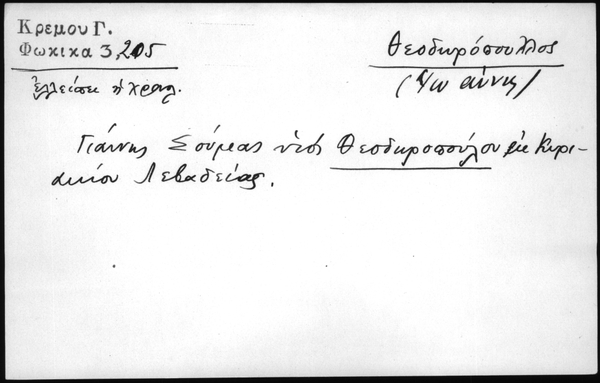 Κρεμου Γ.
Φωκικα 3, 205
ἐλλείπει ἡ χρον.
Θεοδωρόπουλλος
(Ἰωάννης)
Γιάννης Σούμας υἱὸς Θεοδωροπούλου ἐκ Κυρι-
ακίου Λεβαδείας.